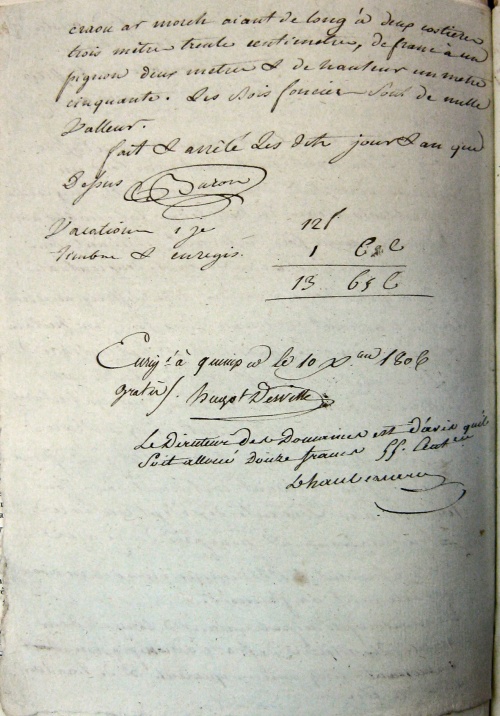 craou ar moech aiant de long à deux costiere
trois metre trente centimetre, de franc à un
pignon deux metre & de hauteur un metre
cinquante. Les Bois foncier sous de nulle
Valleur.
fait & arrêté Les dits jour & an que
Depus Buron
Vacation 1 je 12f
Timbre & enregis. 1
13
Enrig.t à quimper le 10 Xbre an 1806
gratis. hugot Derville
Le Directeur des Domaines est d'avis qu'il
Soit alloué douze francs